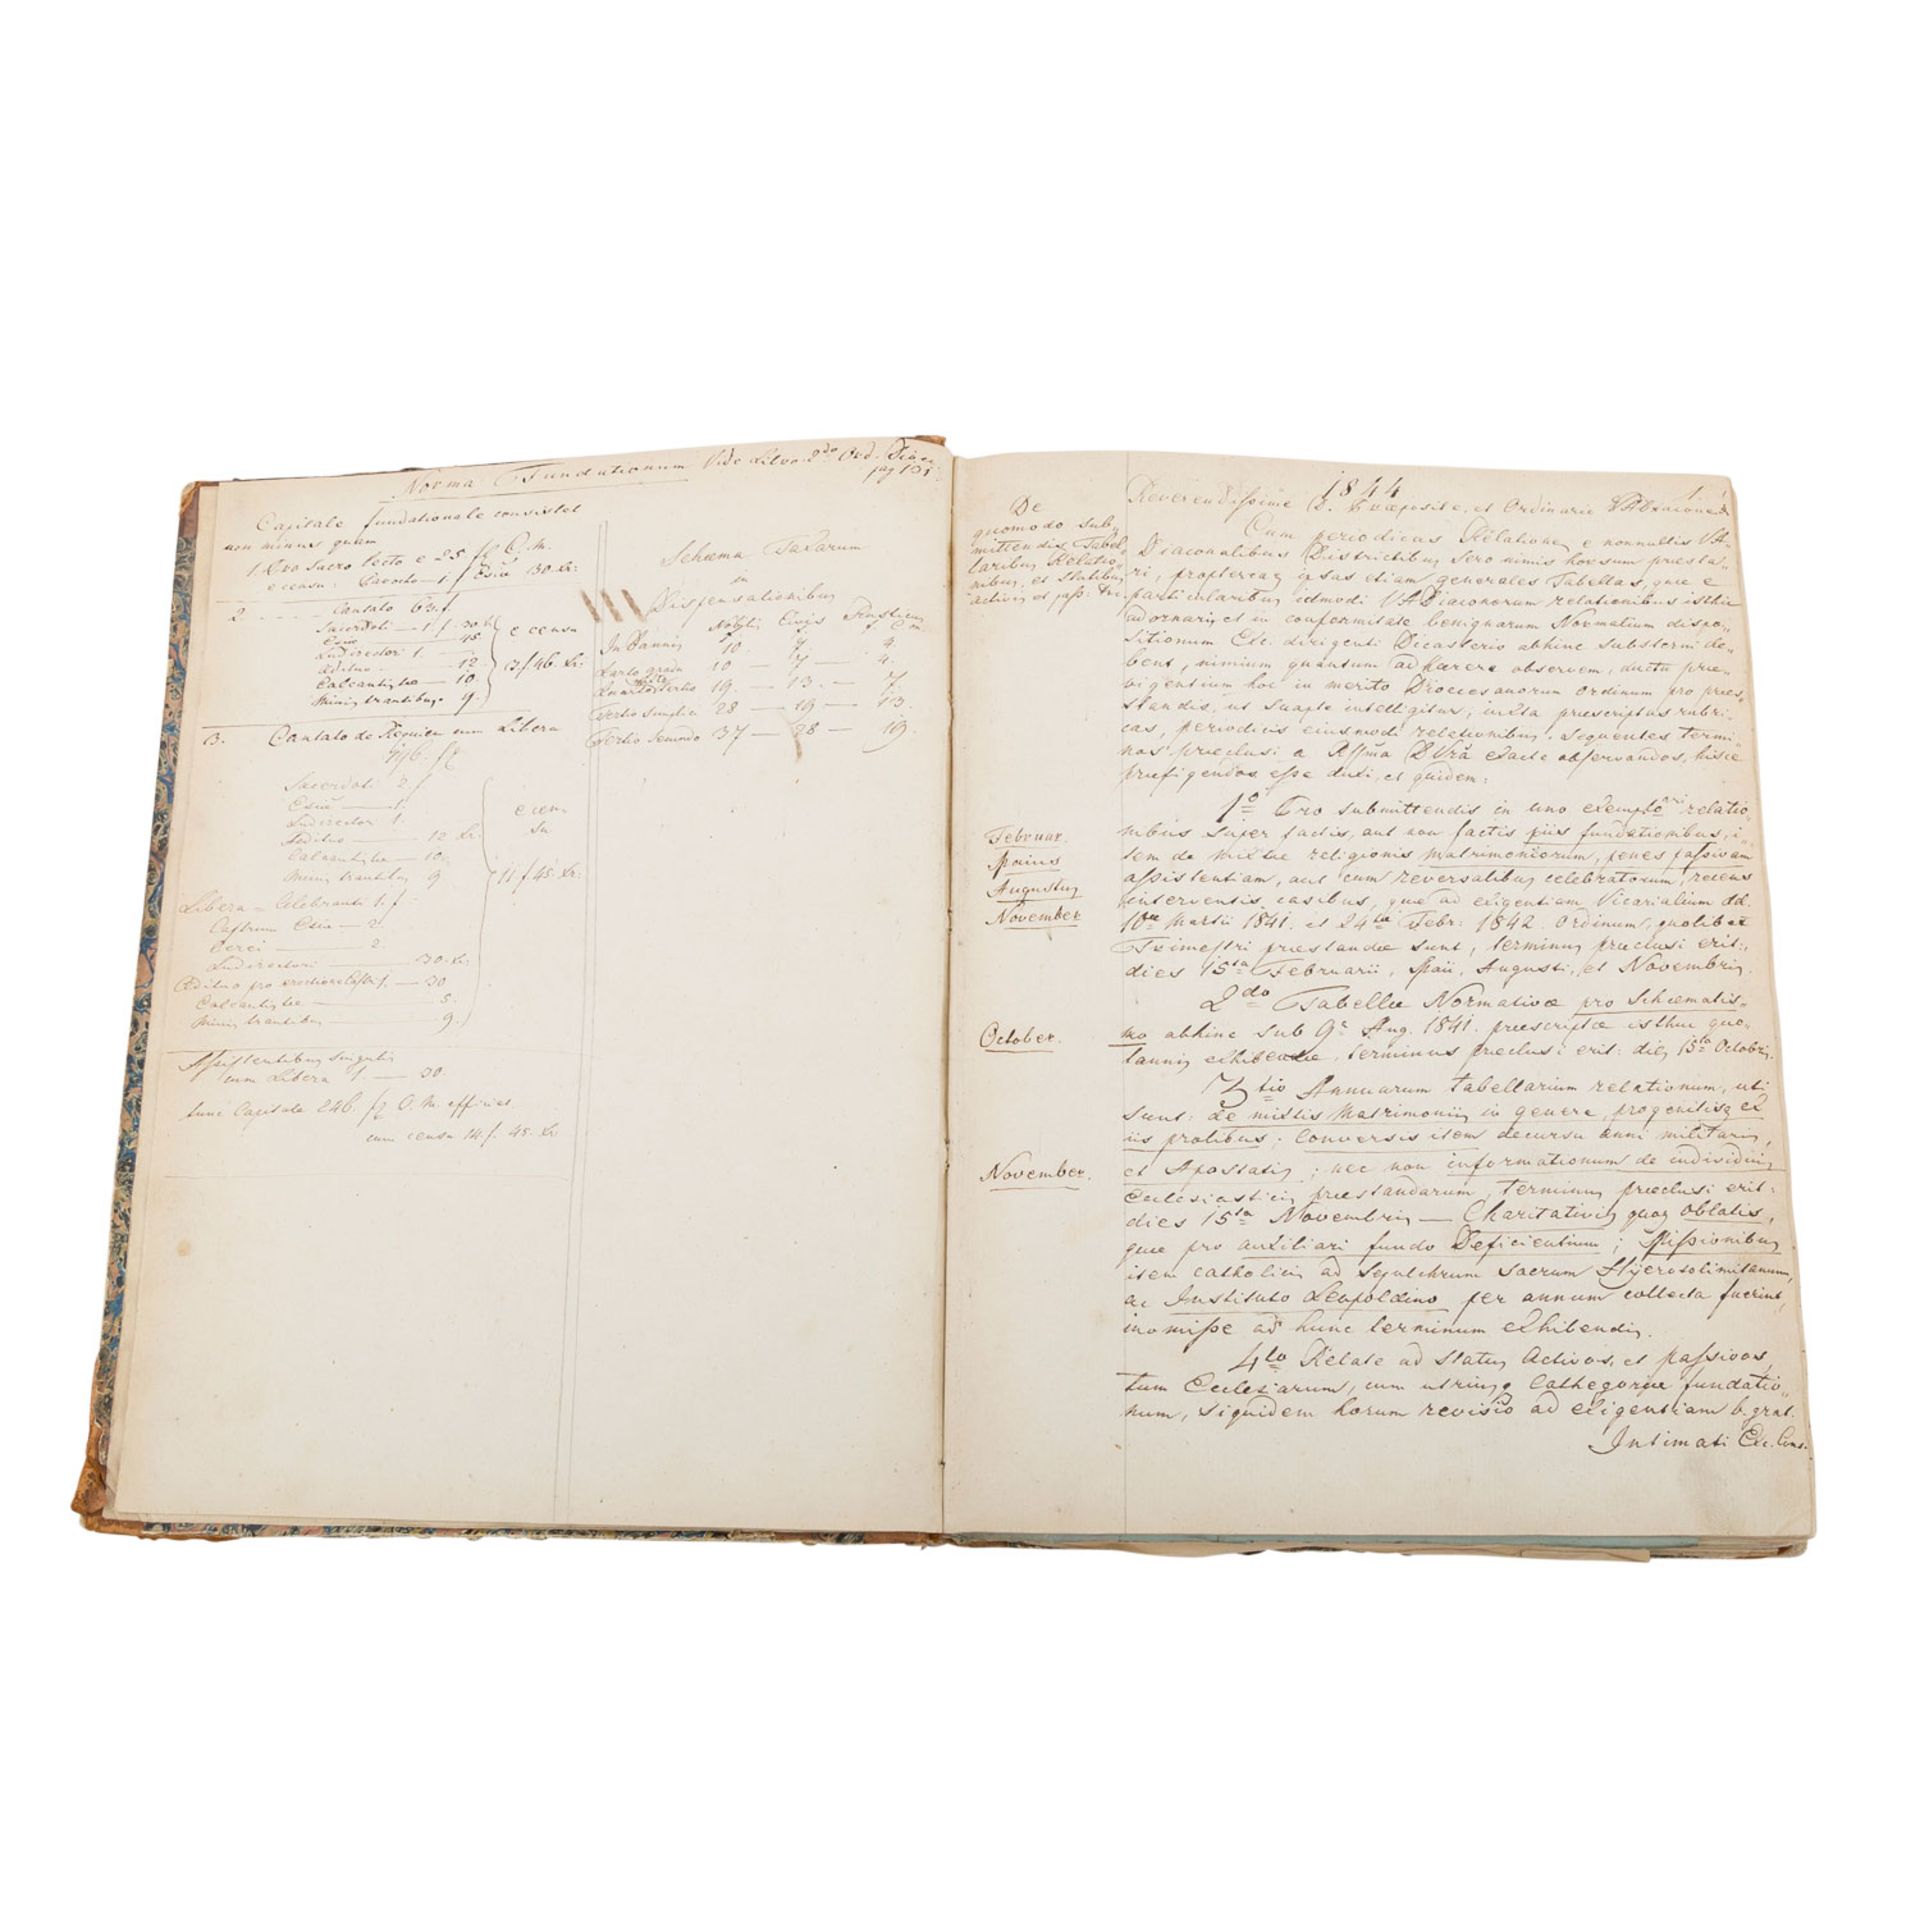 Norma Fundationum Vide Libro 2do Ord. Dioec.
pag 131
Capitale fundationale consistet
non minus quam
1. Pro Sacro lecto e 25 fl C. M.
e censu: Parocho — 1 f Ecsiae 30. xr:
2 . . . . — Cantato 63. f.
Sacerdoti — 1. f. 30. x
Ecsiae — 45
Ludirectori 1. —
Aedituo — 12
Calcantistae — 10.
Ministrantibus 9.
e censu
3 f 46. xr:
3. Cantato de Requiem cum Libera
196. fl
Sacerdoti 2. f
Ecsiae — 1.
Ludirector 1.
Aedituo — 12 xr.
Calcantistae — 10.
Ministrantibus 9.
e cen
su
11 f 45. xr:
Libera = Celebranti 1. f.
Castrum Ecsiae — 2.
Cerei — 2.
Ludirectori — 30. xr:
Aedituo pro erectione Castri — 30
Calcantistae — 5.
Ministrantibus — 9.
Assistentibus singulis
cum Libera 1. — 30.
tunc Capitale 246. fl C. M. efficiet
cum censu 14 f. 45. xr
Schema Taxarum
in
Dispensationibus
Nobilis Civis Rusticus
f. f. f. C. m.
In Bannis 10. 7 4.
Quarto gradu 10 — 7 — 4.
Quarto mixto Tertio 19. — 13. — 7.
Tertio simplici 28 — 19 — 13.
Tertio Secundo 37 — 28 — 19.
1844
1.
Reverendissime D. Praeposite, et Ordinarie VADiacone
De
quomodo sub„
mittendis Tabel„
laribus Relatio„
nibus, et Statibus
activis et pass:
Cum periodicas Relationes e nonnullis VA„
Diaconalibus Districtibus sero nimis horsum praesta„
ri, propterea ipsas etiam generales Tabellas, quae e
particularibus idmodi VADiaconorum relationibus isthic
adornari, et in conformitate benignarum Normalium dispo„
sitionum Exc. dirigenti Dicasterio abhinc substerni de„
bent, nimium quantum adhaerere observem, ductu prae„
vigentium hoc in merito Dioecesanorum Ordinum pro praes„
tandis, ut suapte intelligitur, juxta praescriptas rubri„
cas, periodicis eiusmodi relationibus, sequentes termi„
nos praeclusi a Rssma DVrã exacte observandos, hisce
praefigendos esse duxi, et quidem:
1o Pro submittendis in uno exemplo relatio„
nibus super factis, aut non factis piis fundationibus, i„
tem de mixtae religionis matrimoniorum, penes passivam
assistentiam, aut cum reversalibus celebratorum, recens
interventis casibus, quae ad exigentiam Vicarialium dd.
10ae Martii 1841. et 24ta Febr: 1842. Ordinum, quolibet
Trimestri praestandae sunt, terminus praeclusi erit:
dies 15ta Februarii, Maii, Augusti, et Novembris.
Februar.
Maius
Augustus
November
2do Tabellae Normativae pro Schematis„
mo abhinc sub 9a Aug. 1841. praescriptae isthuc quo„
tannis exhibendae, terminus praeclusi erit: dies 15ta Octobris.
October.
3tio Annuarum tabellarium relationum, uti
sunt: de mixtis Matrimoniis in genere, progenitisq ex
iis prolibus; Conversis item decursu anni militaris,
et Apostatis; nec non informationum de individuis
Ecclesiasticis praestandarum, terminus praeclusi erit:
dies 15ta Novembris — Charitativis quoq oblatis,
quae pro auxiliari fundo Deficientium; Missionibus
item catholicis ad Sepulchrum Sacrum Hyerosolimitanum,
ac Instituto Leopoldino per annum collecta fuerint,
inomisse ad hunc terminum exhibendis.
November.
4to Relate ad Status Activos, et passivos,
tum Ecclesiarum, cum utriusq Cathegoriae fundatio„
num, siquidem horum revisio ad exigentiam b. grat.
Intimati Exc. Cons.